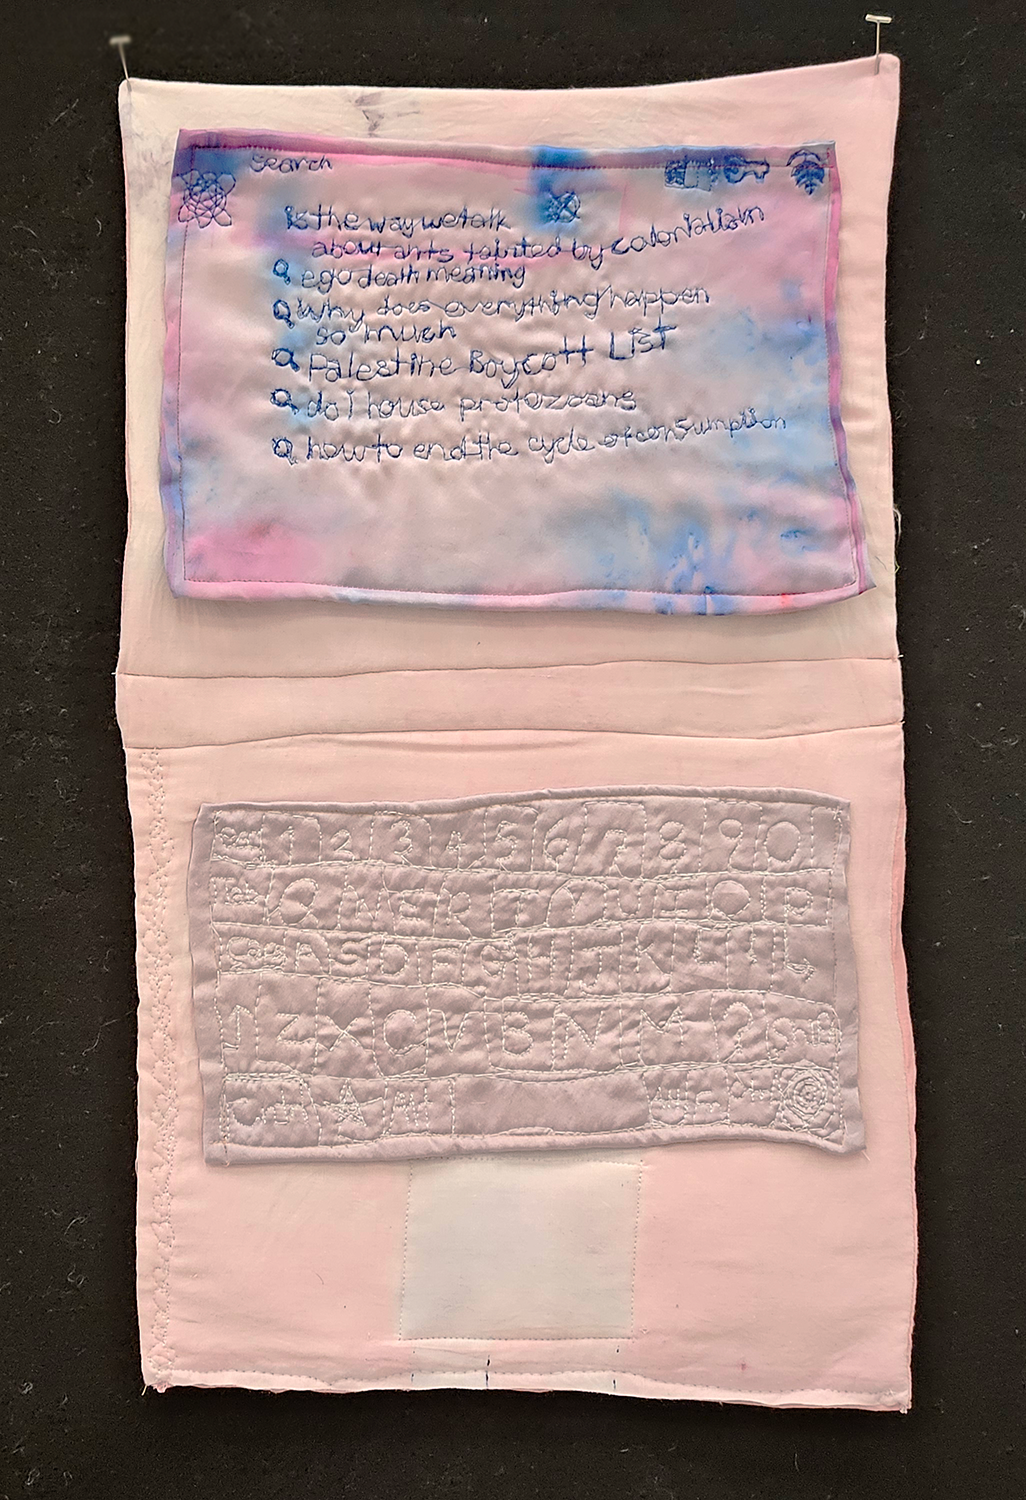 Search
is the way we talk
about arts tainted by colonialism
ego death meaning
Why does everything happen
so much
Palestine Boycott List
do I house protozoans
how to end the cycle of consumption
1 2 3 4 5 6 7 8 9 0
Tab Q W E R T Y U I O P
A S D F G H J K L
Z X C V B N M ?